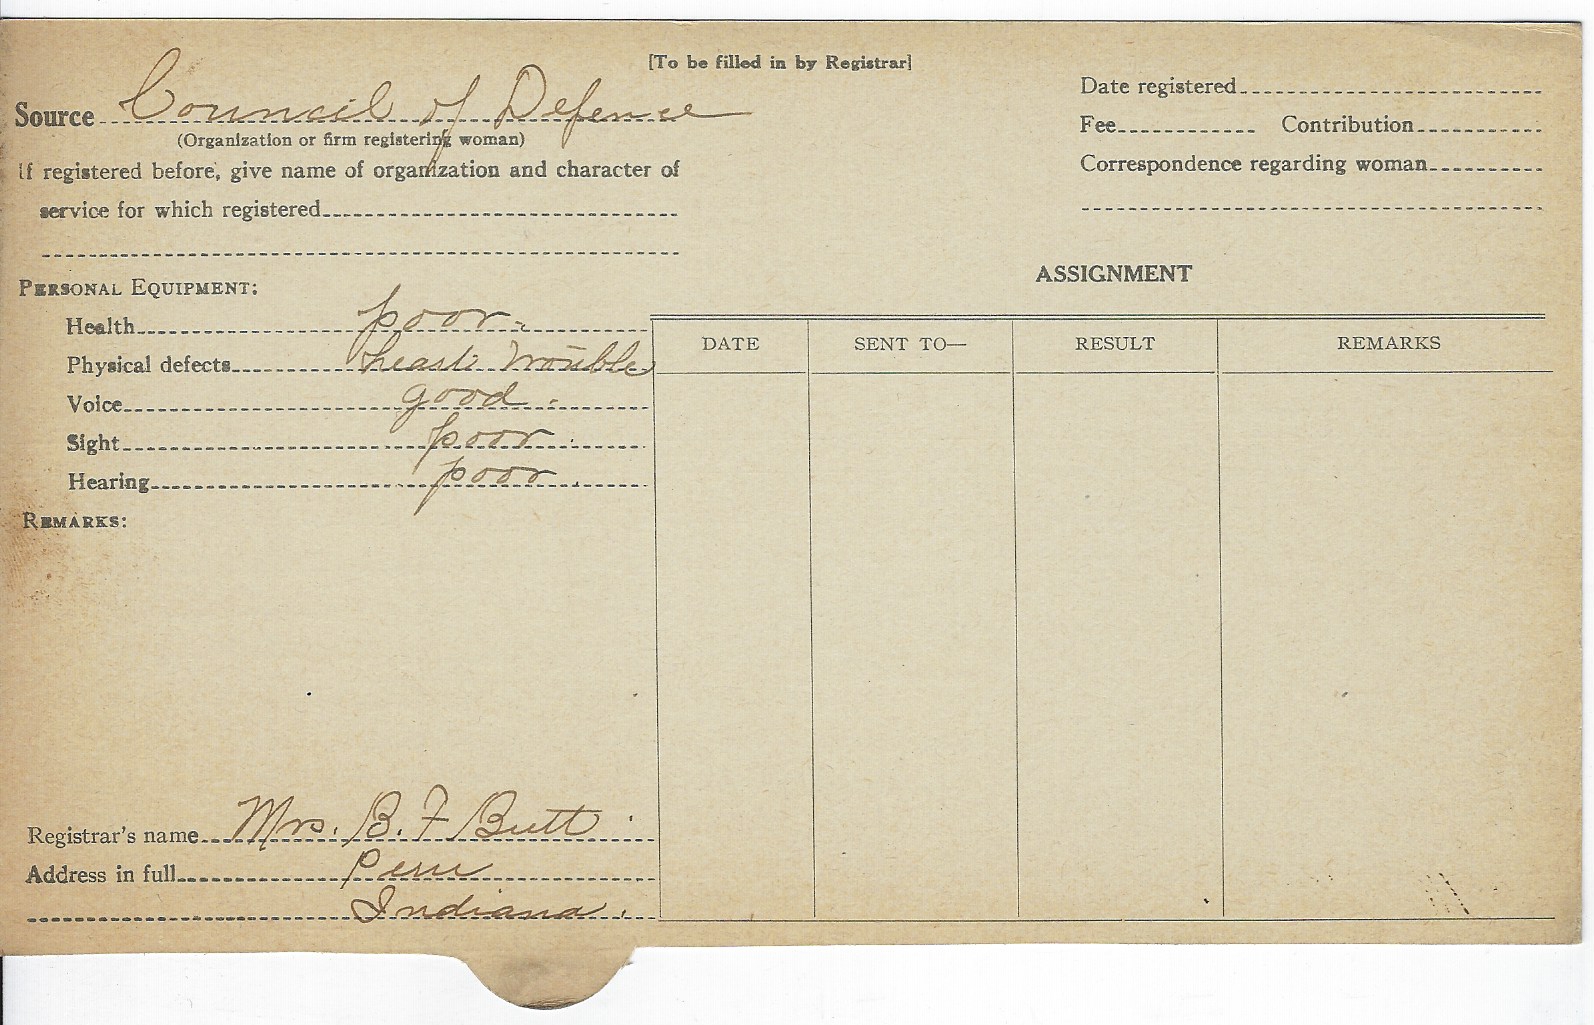 [To be filled in by Registrar]
Source Council of Defense
(Organization or firm registering woman)
If registered before, give name of organization and character of
service for which registered
Date registered
Fee Contribution
Correspondence regarding woman
PERSONAL EQUIPMENT:
Health poor.
Physical defects heart trouble
Voice good.
Sight poor.
Hearing poor.
REMARKS:
ASSIGNMENT
DATE SENT TO— RESULT REMARKS
Registrar's name Mrs. B. F Butt.
Address in full Peru
Indiana.